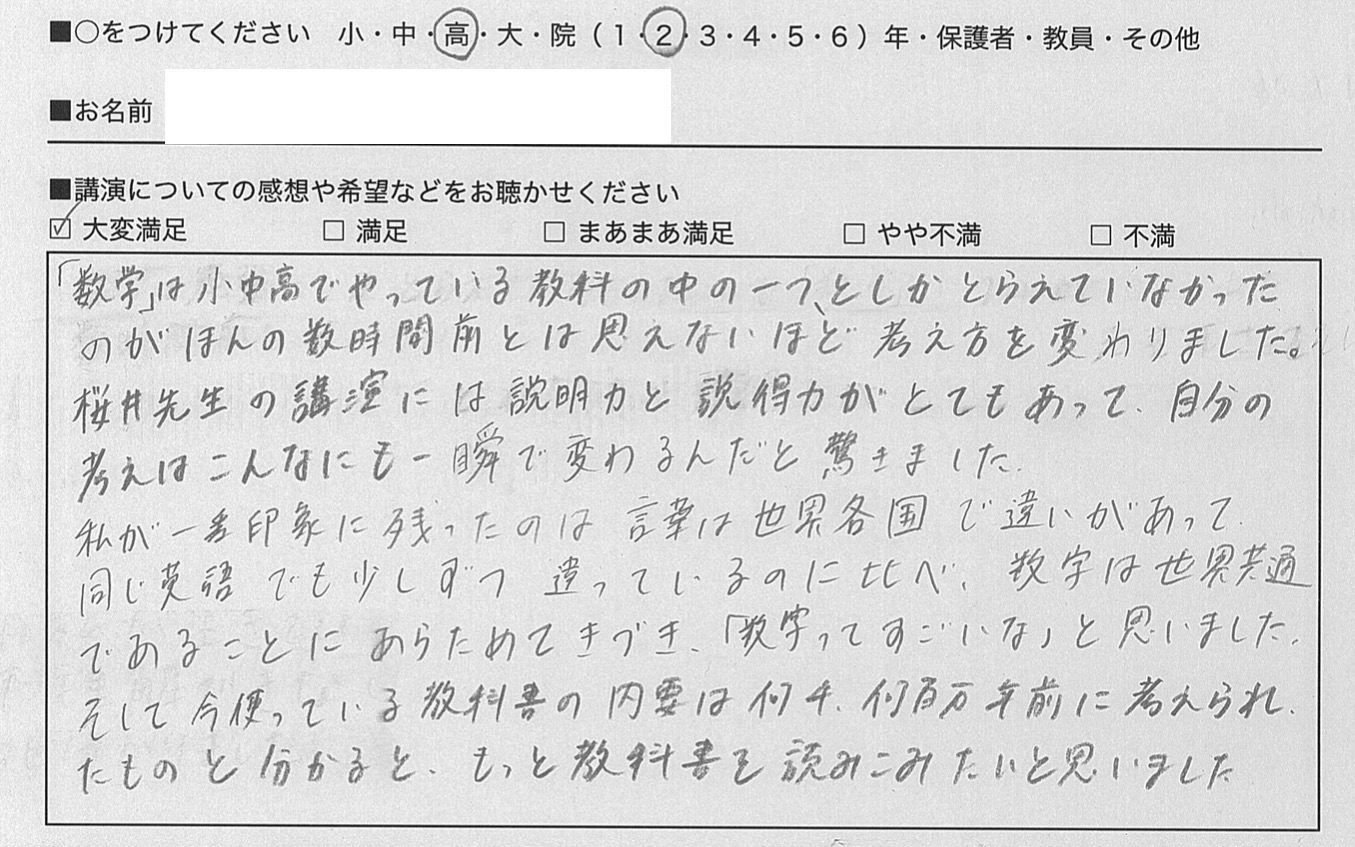 ■○をつけてください 小・中・高・大・院（1・2・3・4・5・6）年・保護者・教員・その他
■お名前
■講演についての感想や希望などをお聴かせください
☑ 大変満足 □ 満足 □ まあまあ満足 □ やや不満 □ 不満
「数学」は小中高でやっている教科の中の一つ、としかとらえていなかった
のがほんの数時間前とは思えないほど考え方を変わりました。
桜井先生の講演には説明力と説得力がとてもあって、自分の
考えはこんなにも一瞬で変わるんだと驚きました。
私が一番印象に残ったのは言葉は世界各国で違いがあって、
同じ英語でも少しずつ違っているのに比べ、数字は世界共通
であることにあらためてきづき、「数字ってすごいな」と思いました。
そして今使っている教科書の内要は何千、何百万年前に考えられ、
たものと分かると、もっと教科書を読みこみたいと思いました